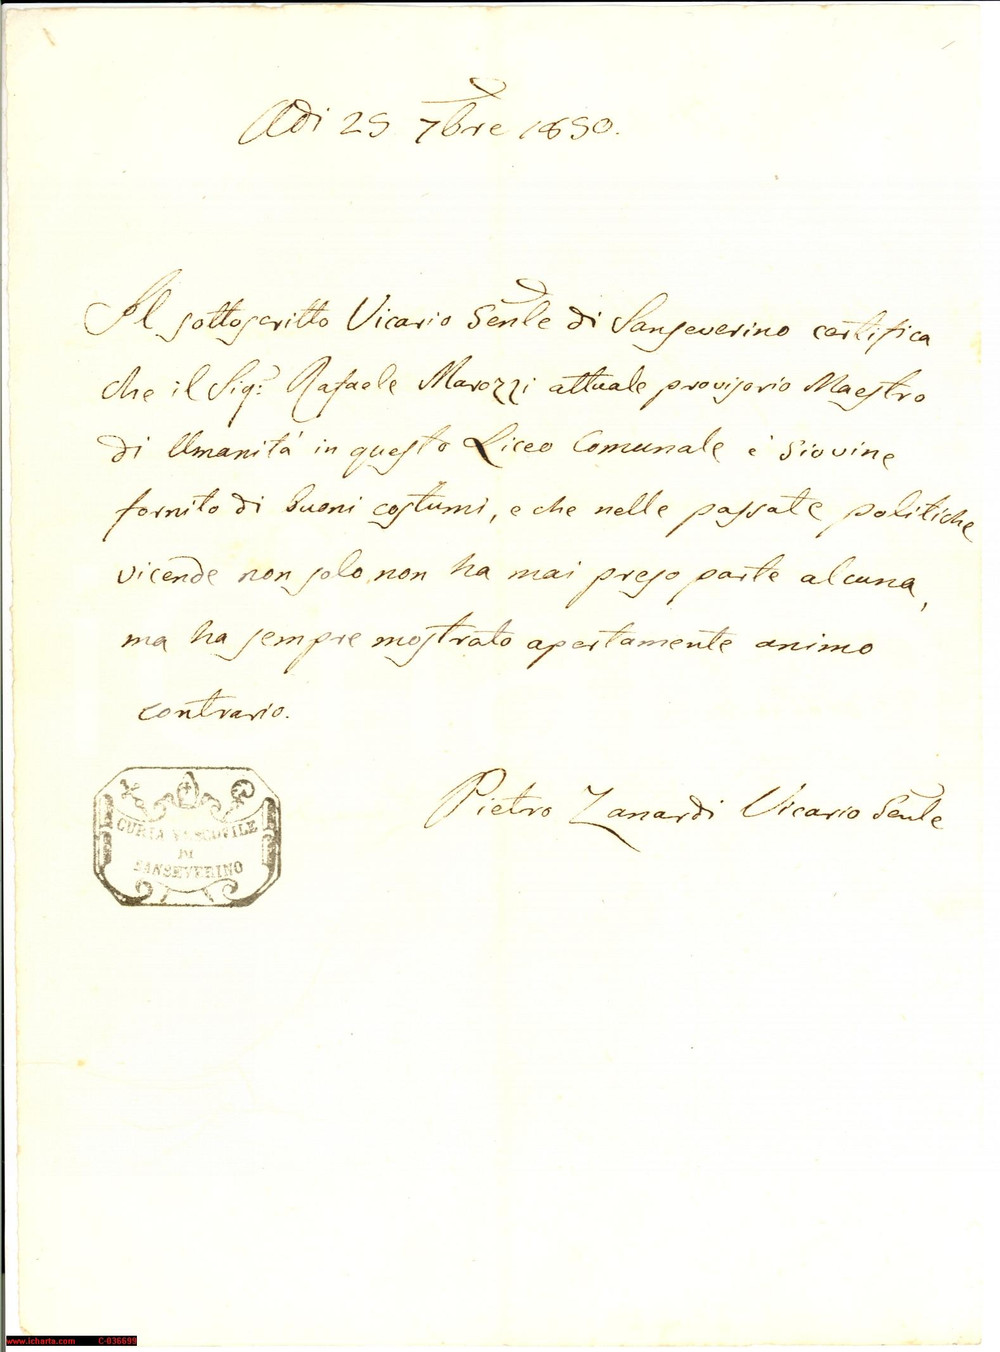 Adi 25 7bre 1850.
Il sottoscritto Vicario Genle di Sanseverino certifica
che il Sigr. Rafaele Marozzi attuale provisorio Maestro
di Umanitá in questo Liceo Comunale è Giovine
fornito di buoni costumi, e che nelle passate politiche
vicende non solo non ha mai preso parte alcuna,
ma ha sempre mostrato apertamente animo
contrario.
Pietro Zanardi Vicario Genle
CURIA VESCOVILE
DI
SANSEVERINO
www.icharta.com C-036699